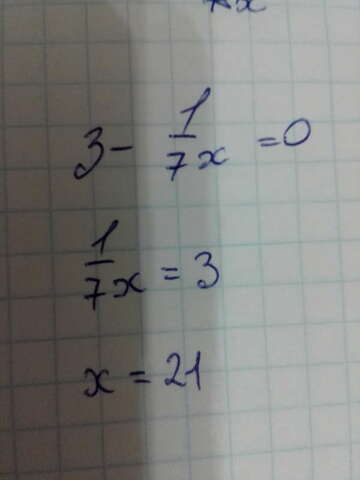 3 - 1/7x = 0
1/7x = 3
x = 21